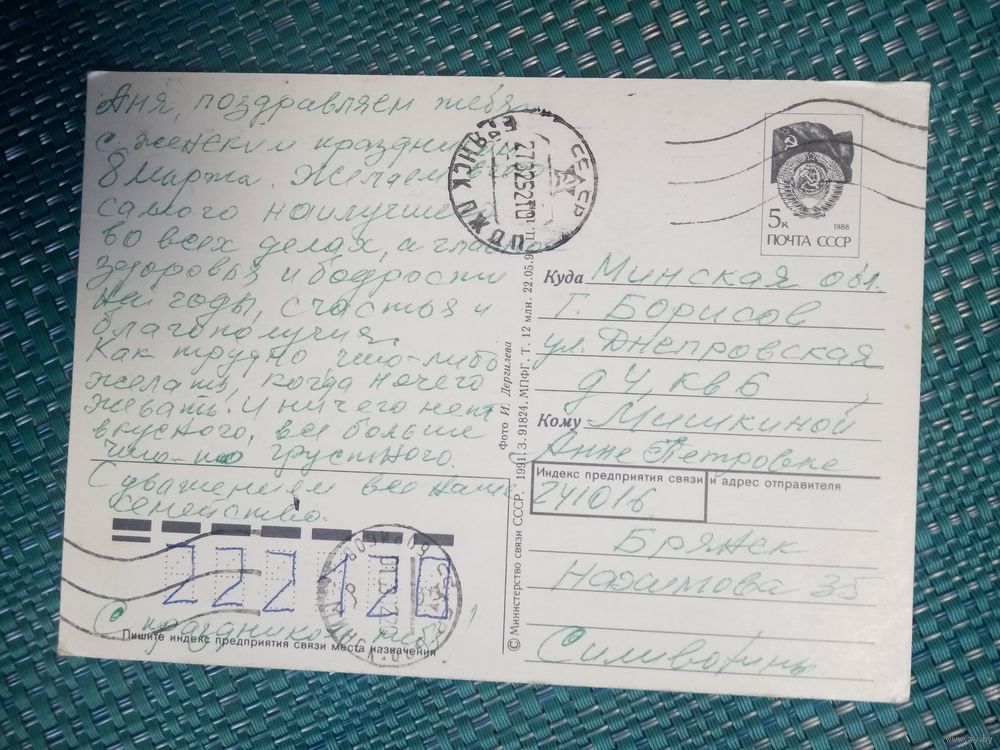 Аня, поздравляем тебя
с женским праздником
8 марта. Желаем всего
самого наилучшего
во всех делах, а главное
здоровья, и бодрости
на годы, счастья и
благополучия.
Как трудно, что-либо
желать, когда нечего
жевать. И ничего нет
вкусного, все больше
что-то грустного.
С уважением все наше
семейство.
222120
С праздником тебя!
Пишите индекс предприятия связи места назначения
СССР
БРЯНСК
ПЖДП
5к
1988
ПОЧТА СССР
Куда Минская обл.
г. Борисов
ул. Днепровская
д 4, кв 6
Кому Мишкиной
Анне Петровне
Индекс предприятия связи и адрес отправителя
241016
Брянск
Нахимова 35
© Министерство связи СССР. 1991. З. 91824. МПФГ. Т. 12 млн. 22.05.9
Фото И. Дергилева
www.ay.by